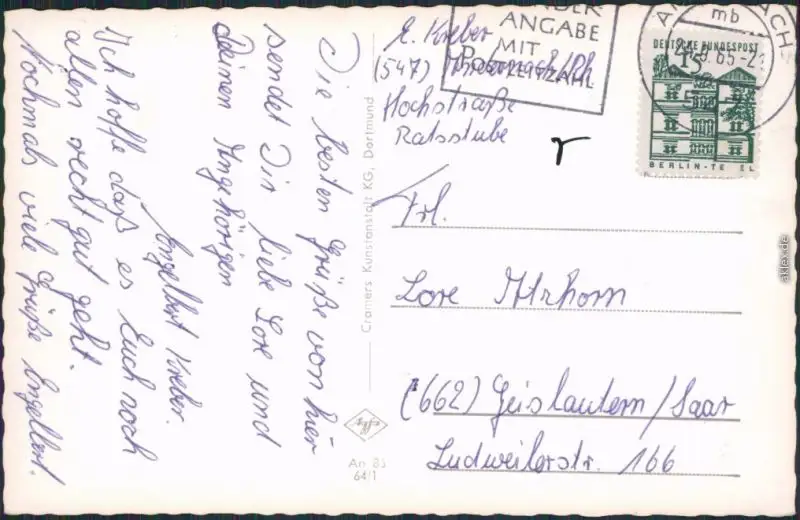 Die besten Grüße von hier
sendet Dir liebe Lore und
Deinen Angehörigen
Engelbert Kreber.
Ich hoffe daß es Euch noch
allen recht gut geht.
Nochmals viele Grüße Engelbert.
Cramers Kunstanstalt KG, Dortmund
Agfa
An 85
64/1
E. Kreber
(547) /Rh
Hochstraße
Ratsstube
ANGABE
MIT
POSTLEITZAHL
mb
65-2
DEUTSCHE BUNDESPOST
15
BERLIN-TE EL
Frl.
Lore Altrhorn
(662) Geislautern/Saar
Ludweilerstr. 166
akleix.de